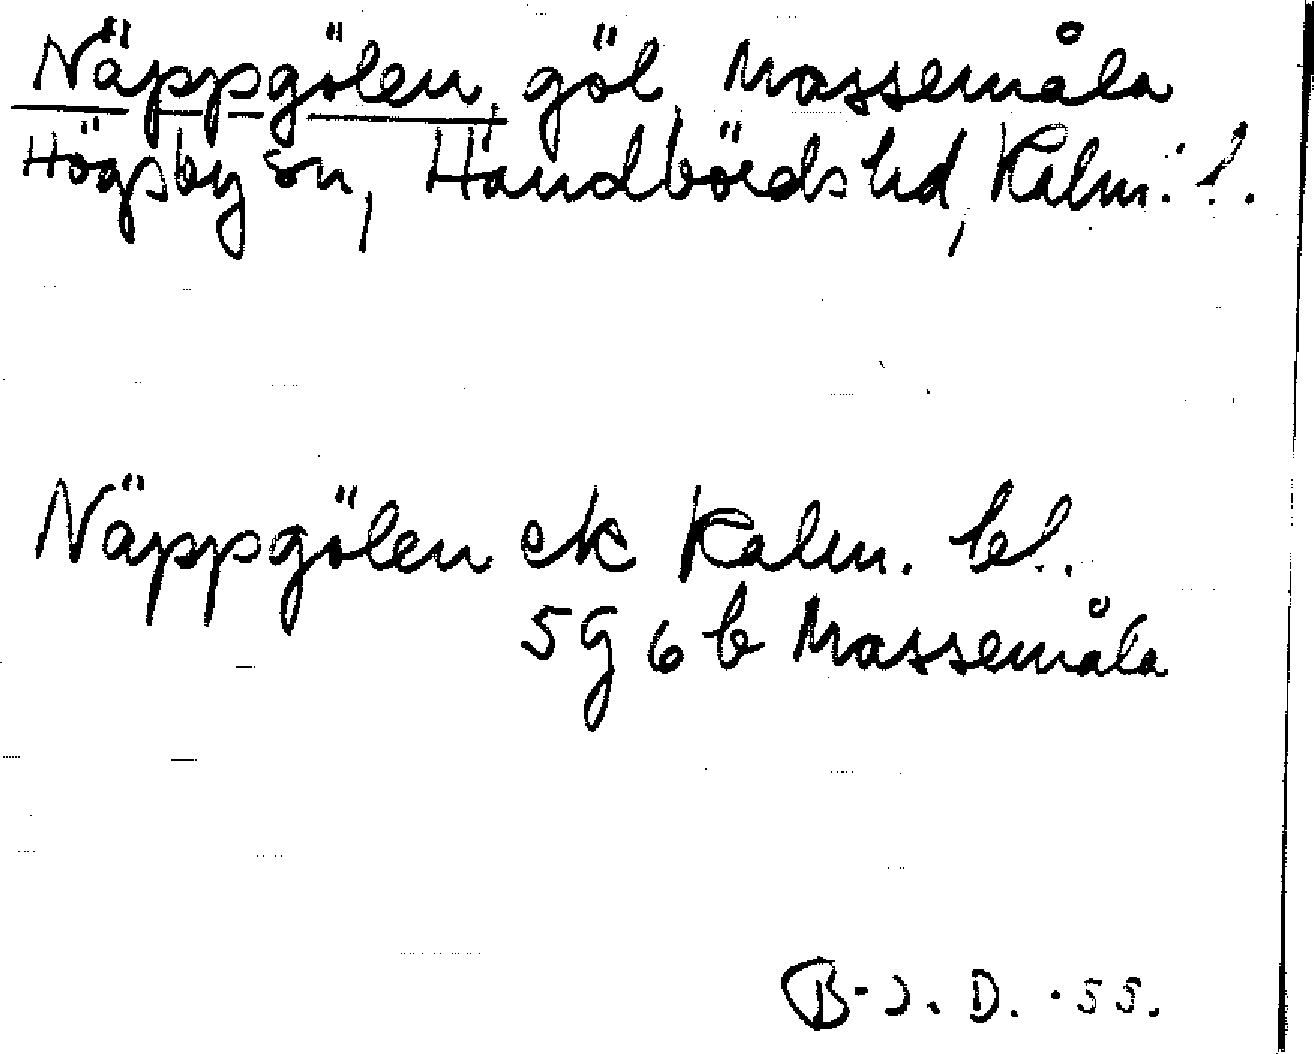 Näppgölen, göl, Massemåla
Högsby sn, Handbörds hd, Kalm. l.
Näppgölen ek Kalm. bl.
5g 6 b Massemåla
B-J. D. ·55.